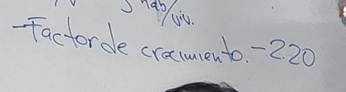 hab/viv.
-Factor de crecimiento. -2.20